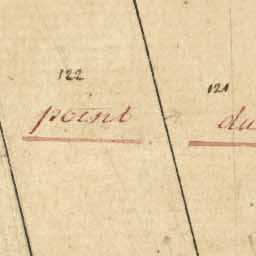 122
point
121
du